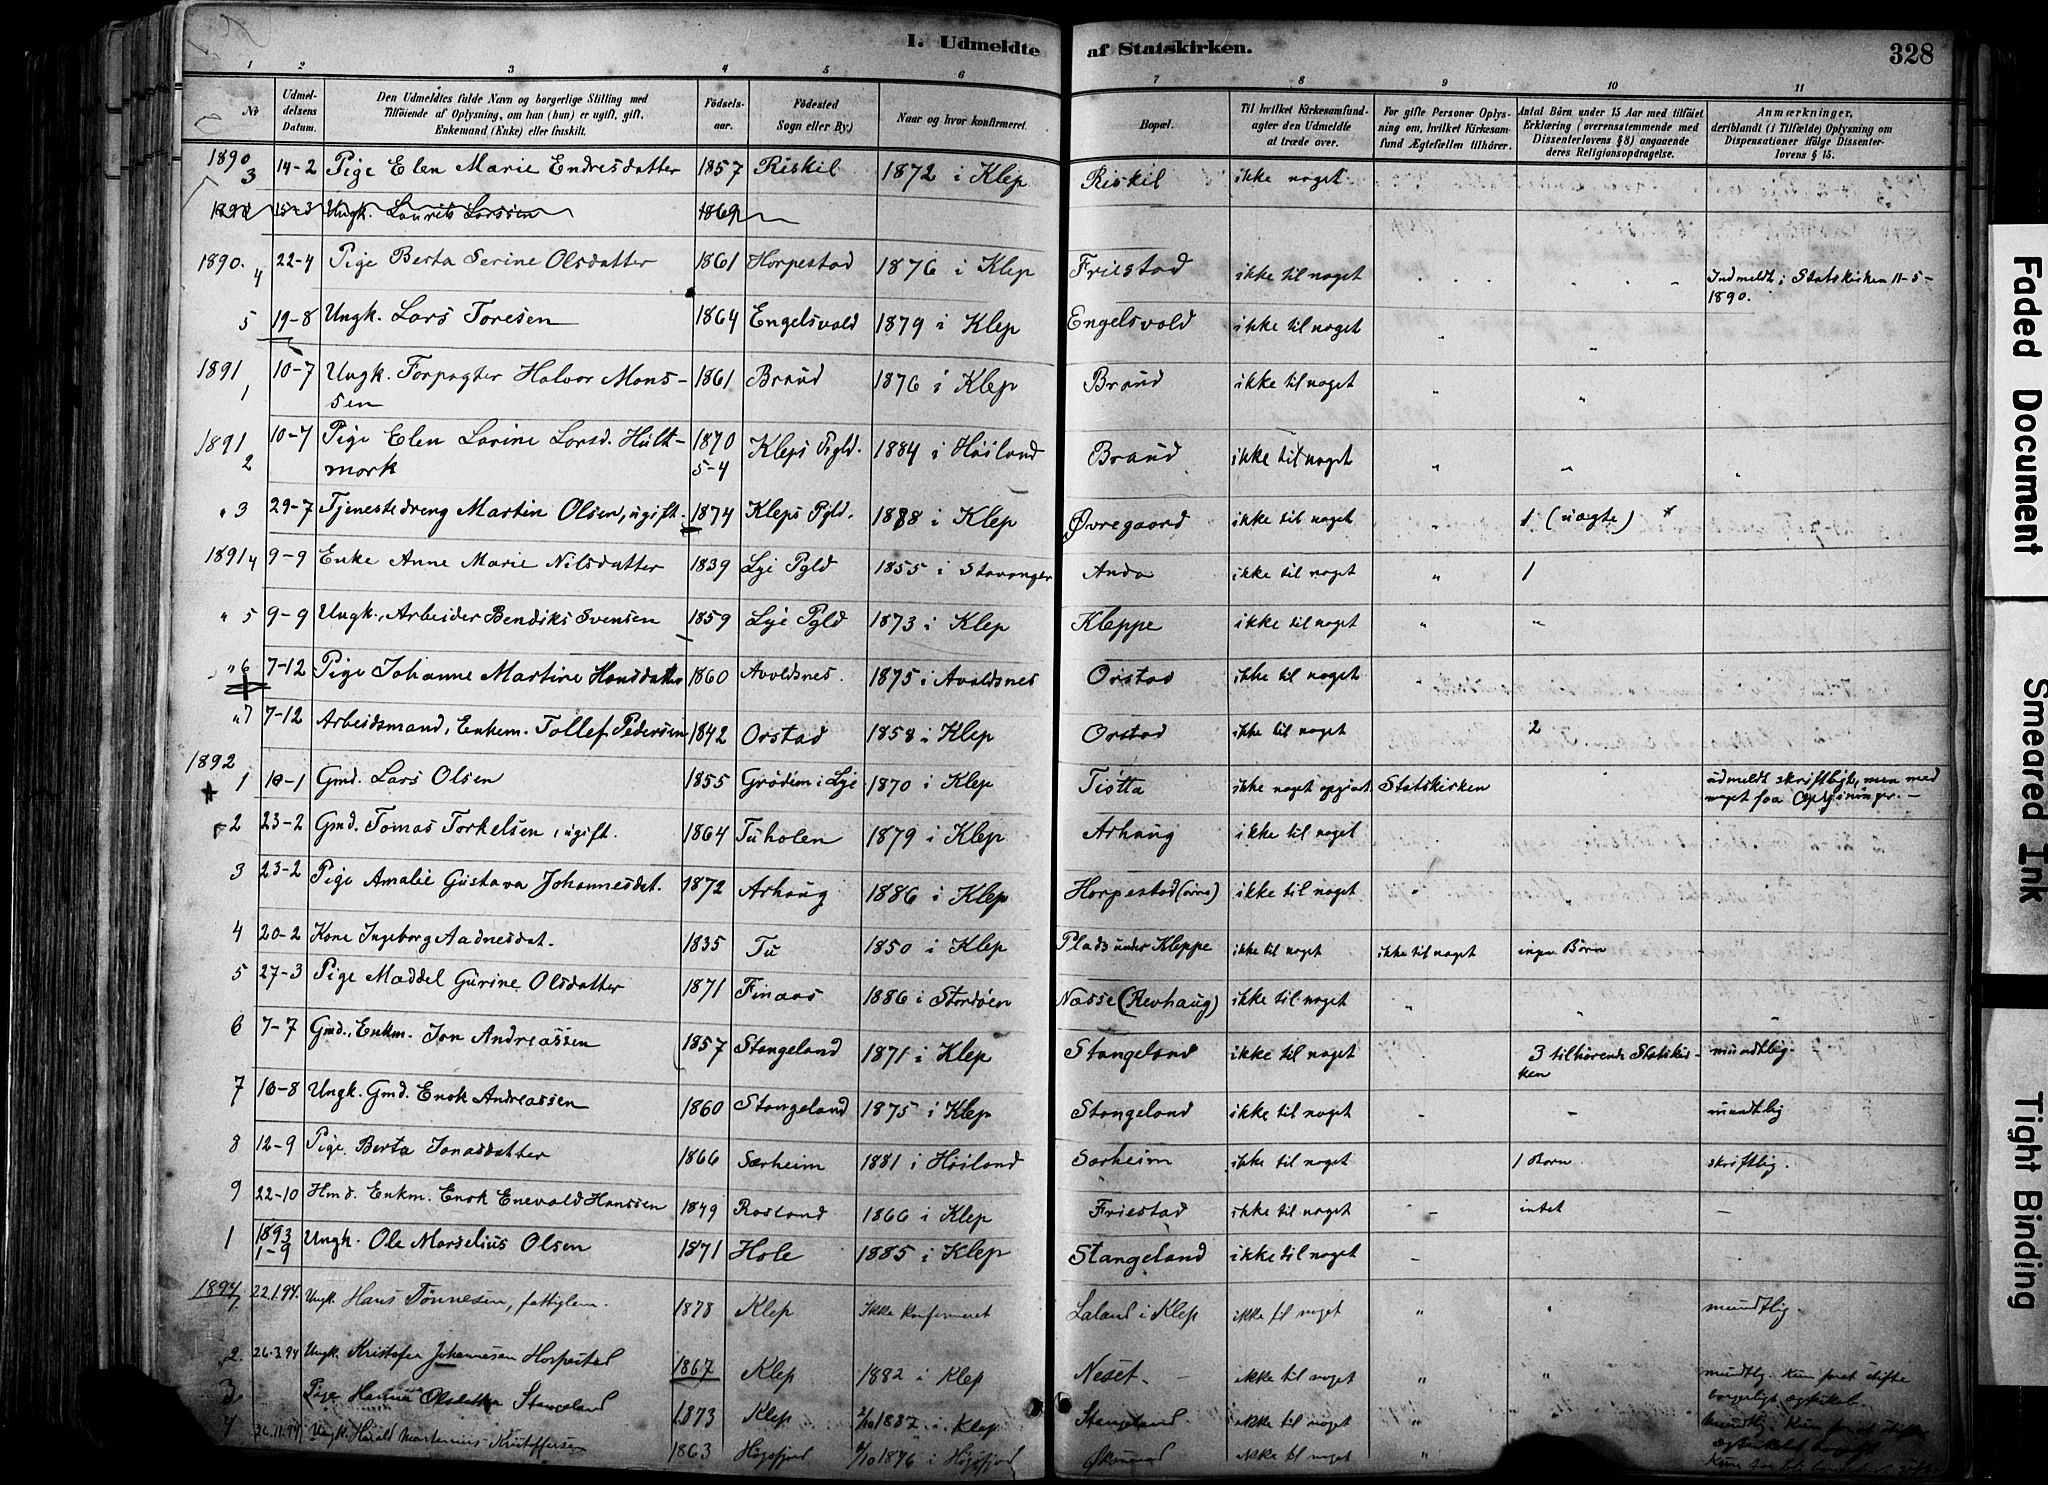 1. Udmeldte af Statskirken. 328
1 2 3 4 5 6 7 8 9 10 11
No
Udmeldelsens Datum.
Den Udmeldtes fulde Navn og borgerlige Stilling med
Tilføiende af Oplysning, om han (hun) er ugift, gift,
Enkemand (Enke) eller fraskilt.
Fødselsaar.
Fødested
Sogn eller By.)
Naar og hvor konfirmeret.
Bopæl.
Til hvilket Kirkesamfund
agter den Udmeldte
at træde over.
For gifte Personer Oplysning
om, hvilket Kirkesamfund
Ægtefællen tilhører.
Antal Børn under 15 Aar med tilføiet
Erklæring (overensstemmende med
Dissenterlovens § 8) angaaende
deres Religionsopdragelse.
Anmærkninger,
deriblandt (i Tilfælde) Oplysning om
Dispensationer ifølge Dissenterlovens § 15.
1890 3 14-2 Pige Elen Marie Endresdatter 1857 Riskil 1872 i Klep Riskil ikke noget
1891 15-3 Ungk. Laurits Larssen 1869
1890. 4 22-4 Pige Berta Serine Olsdatter 1861 Horpestad 1876 i Klep Friestad ikke til noget Indmeldt i Statskirken 11-5-1890.
5 19-8 Ungk. Lars Toresen 1864 Engelsvold 1879 i Klep Engelsvold ikke til noget "
1891 1 10-7 Ungk. Forpagter Halvor Monssen 1861 Braud 1876 i Klep Braud ikke til noget " "
1891 2 10-7 Pige Elen Larine Larsd. Hultmork 1870 5-4 Kleps Pgld. 1884 i Høiland Braud ikke til noget " " "
" 3 29-7 Tjenestedreng Martin Olsen, ugift. 1874 Kleps Pgld. 1888 i Klep Øvregaard ikke til noget " 1 (uægte)
1891 4 9-9 Enke Anne Marie Nilsdatter 1839 Lye Pgld 1855 i Stavanger Anda ikke til noget " 1
" 5 9-9 Ungk., Arbeider Bendiks Svensen 1859 Lye Pgld 1873 i Klep Kleppe ikke til noget " "
" 6 7-12 Pige Johanne Martine Hansdatter 1860 Avaldsnes. 1875 i Avaldsnes Orstad ikke til noget
" 7 7-12 Arbeidsmand, Enkem. Tollef Pedersen 1842 Orstad 1858 i Klep Orstad ikke til noget 2
1892
1 18-1 Gmd. Lars Olsen 1855 Grødem i Lye 1870 i Klep Tiøtta ikke noget opgivet Statskirken udmeldt skriftligt, men med noget faa Oplysninger.-
2 23-2 Gmd. Tomas Torkelsen, ugift. 1864 Tuholen 1879 i Klep Arhaug ikke til noget
3 23-2 Pige Amalie Gustava Johannesdat. 1872 Arhaug 1886 i Klep Horpestad ikke til noget
4 20-2 Kone Ingeborg Aadnesdat. 1835 Tu 1850 i Klep Plads under Kleppe ikke til noget ikke til noget ingen Børn
5 27-3 Pige Maddel Gurine Olsdatter 1871 Finaas 1886 i Stordøen Næsse (Revhaug) ikke til noget " " "
6 7-7 Gmd., Enkm. Jon Andreassen 1857 Stangeland 1871 i Klep Stangeland ikke til noget 3 tilhørende Statskirken mundtlig.
7 10-8 Ungk. Gmd. Enok Andreassen 1860 Stangeland 1875 i Klep Stangeland ikke til noget - - mundtlig
8 12-9 Pige Berta Jonasdatter 1866 Særheim 1881 i Høiland Særheim ikke til noget 1 Barn skriftlig.
9 22-10 Hmd. Enkm. Enok Enevald Hanssen 1849 Rosland 1866 i Klep Friestad ikke til noget - intet -
1 1893 1-9 Ungk. Ole Marselius Olsen 1871 Hole 1885 i Klep Stangeland ikke til noget -
1894 1 22.1.94. Ungk. Hans Tønnesen, fattiglem. 1878 Klep Ikke konfirmeret Laland i Klep ikke til noget " " mundtlig.
2. 26.3.94 Ungk. Kristofer Johannesen Horpestad 1867 Klep 1882 i Klep Neset. ikke til noget " " mundtlig. Kun foret stifte borgerligt ægteskab.
3. Pige Hanna Olsdatter Stangeland 1873 Klep 1887 i Klep Stangeland ikke til noget " mundtlig. Kun for at stifte
4 26.11.94 Ungk. Harald Martenius Kristoffersen 1863 Høgsfjord 1876 i Høgsfjord ikke til noget "
Faded Document
Smeared Ink
Tight Binding